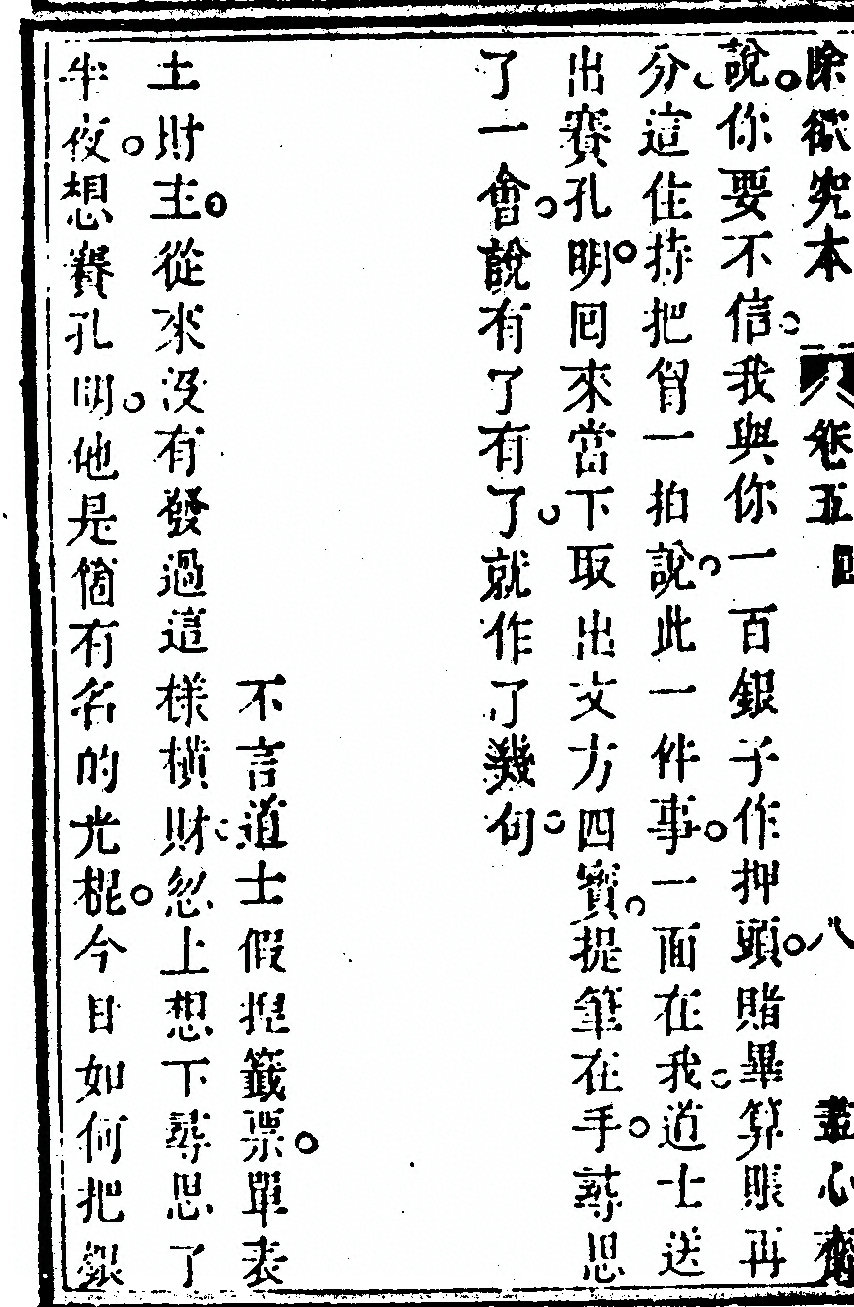 除欲究本 卷五 八 盡心齋
說你要不信我與你一百銀子作押頭賭畢算賬再
分這住持把胷一拍說此一件事一面在我道士送
出賽孔明囘來當下取出文方四寶提筆在手尋思
了一會說有了有了就作了幾句
不言道士假揑籤票單表
土財主從來沒有發過這樣橫財忽上想下尋思了
半夜想賽孔明他是箇有名的光棍今日如何把銀